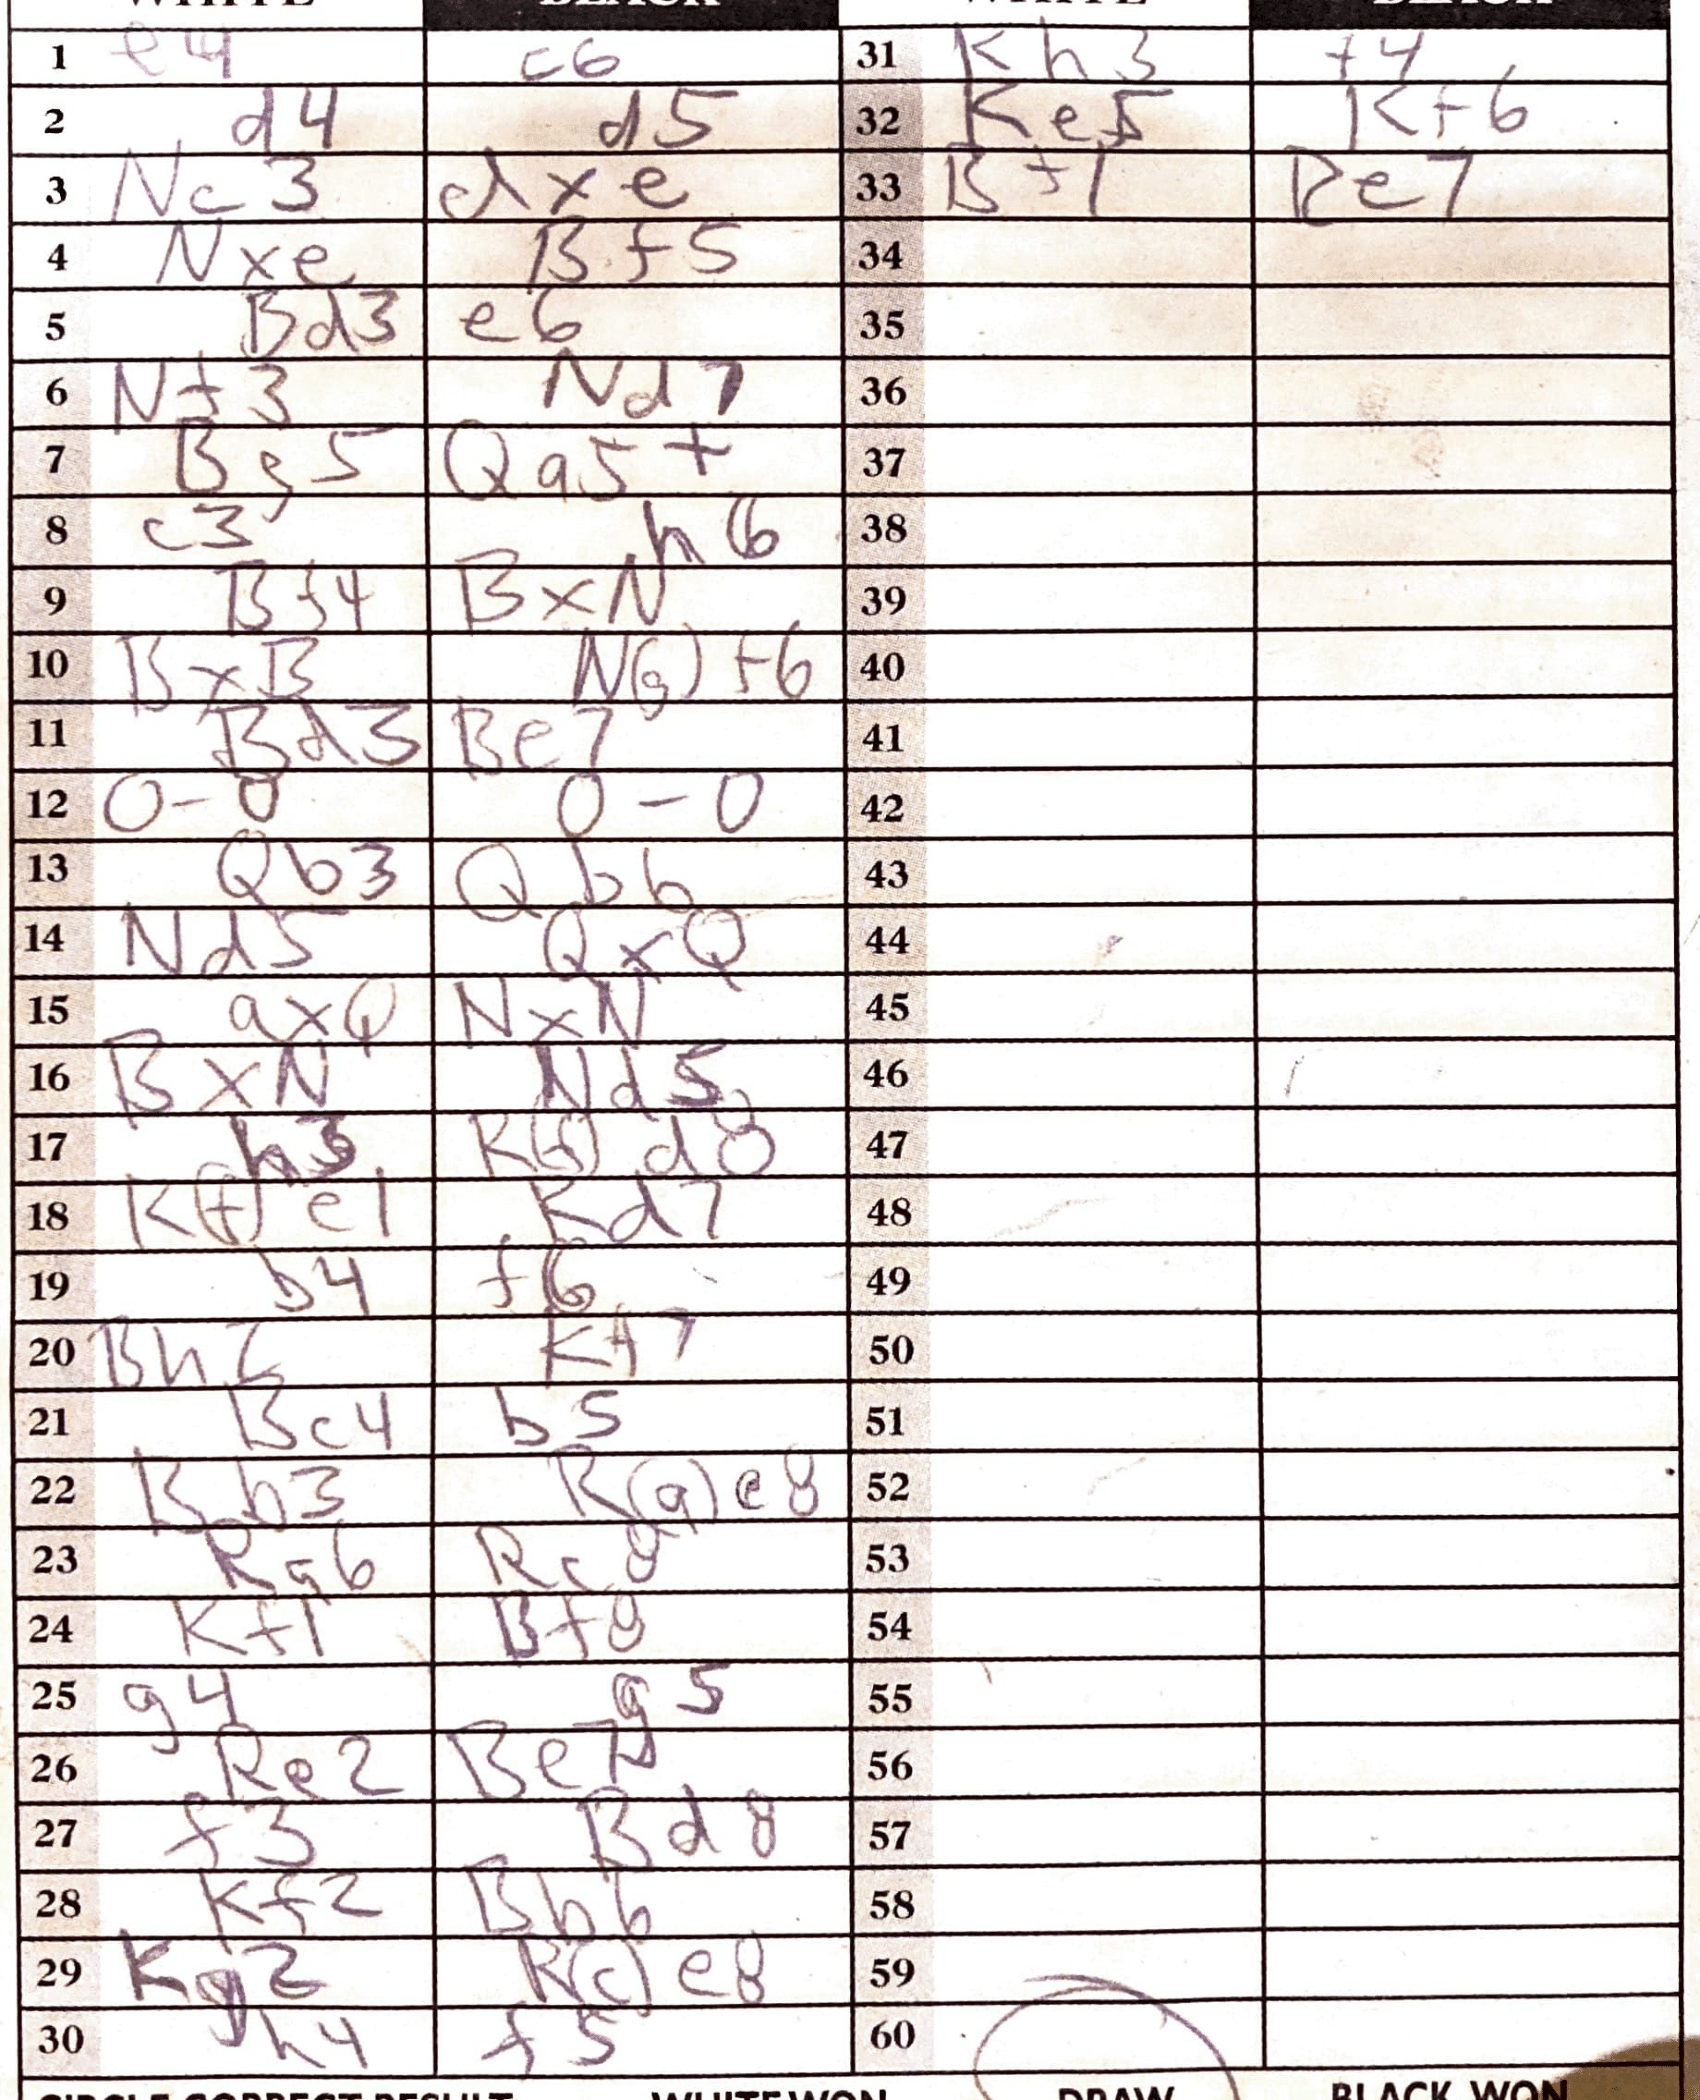 WHITE BLACK WHITE BLACK
1 e4 c6 31 Kh3 f4
2 d4 d5 32 Re5 Kf6
3 Nc3 dxe 33 Bf1 Re7
4 Nxe Bf5 34
5 Bd3 e6 35
6 Nf3 Nd7 36
7 Bg5 Qa5+ 37
8 c3 h6 38
9 Bf4 BxN 39
10 BxB N(g)f6 40
11 Bd3 Be7 41
12 0-0 0-0 42
13 Qb3 Qb6 43
14 Nd5 QxQ 44
15 axQ NxN 45
16 BxN Nd5 46
17 h3 R(f)d8 47
18 R(f)e1 Rd7 48
19 b4 f6 49
20 Bh2 Kf7 50
21 Bc4 b5 51
22 Bb3 R(a)e8 52
23 Ra6 Rc8 53
24 Kf1 Bf8 54
25 g4 g5 55
26 Re2 Be7 56
27 f3 Bd8 57
28 Kf2 Bb6 58
29 Kg2 R(c)e8 59
30 h4 f5 60
CIRCLE CORRECT RESULT WHITE WON DRAW BLACK WON